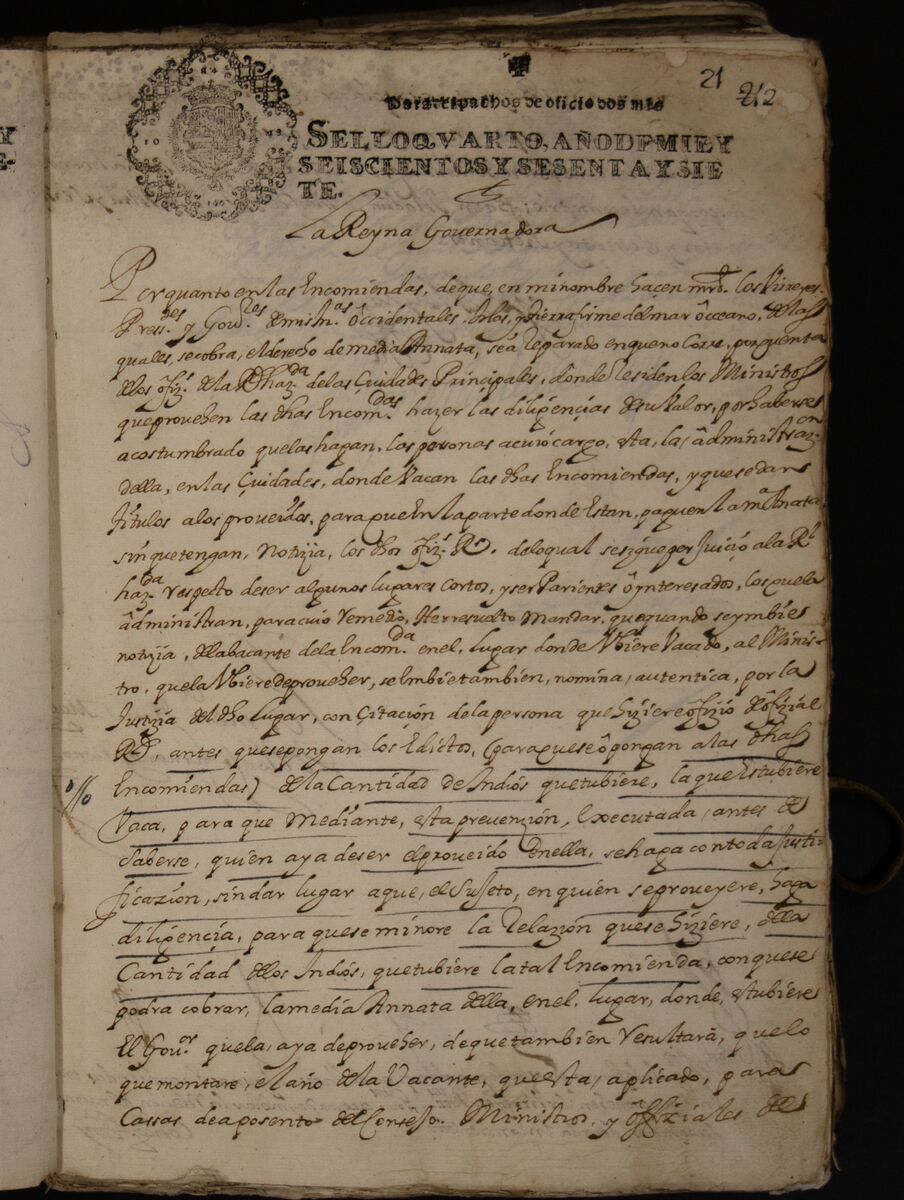 21 212
Para despachos de oficio dos mrs
SELLO QVARTO, AÑO DE MIL Y
SEISCIENTOS Y SESENTA Y SIE
TE.
La Reyna Governadora
Por quanto en las Encomiendas, deque, en mi nombre hacen mrd. los Virreyes.
Press.es y Gou.res de mis In.as ôccidentales. Islas, y tierra firme del mar ôcceano, de las
quales, se cobra, el derecho de media Annata, se a Reparado en que no Corre, por quenta
de los ofiz.s de la Rl haz.da de las Çiudades Principales, donde Residen los Ministros
que provehen las dhas Encom.das hazer las diligençias de su Valor, por haberse
acostumbrado que las hagan, las personas a cuio cargo, esta, la, âdministraz.on
della, en las Çiudades, donde Vacan las dhas Encomiendas, y que se dan
Titulos a los proveidos, para que En la parte donde Estan, paguen la m.a Annata
sin que tengan, Notizia, los dhos ofiz.s R.s de lo qual se sigue perjuiçio a la Rl
haz.da respecto de ser algunos lugares cortos, y ser Parientes ô ynteresados, los que la
âdministran, para cuio remedio, He rresuelto Mandar, que quando se ymbie
notizia, de la bacante de la Encom.da en el, lugar donde Vbiere Vacado, al Minis-
tro, que la Vbiere de proveher, se Imbie tambien, nomina, autentica, por la
Justizia del dho lugar, con Çitaçion de la persona que hiziere ofizio de ôfizial
Rl, antes que se pongan los Edictos, (para que se ôpongan a las dhas
Encomiendas) de la Cantidad de Indios que tubiere, la que Estubiere
Vaca, para que Mediante, esta prevenzion, Executada, antes de
Saberse, quien aya de ser el proveido En ella, se haga con toda Justi-
ficazion, sin dar lugar a que, el Sujeto, en quien se proveyere, haga
diligençia, para que se minore la Relazion que se hiziere, de la
Cantidad de los Indios, que tubiere la tal Encomienda, con que se
podra cobrar, la media Annata della, en el, lugar, donde, estubiere
El Gou.or que la, aya de proveher, de que tambien Resultarâ, que lo
que montare, el año de la Vacante, que esta, aplicado, para
Cassas de aposento del Consejo. Ministros, y ôffiziales de